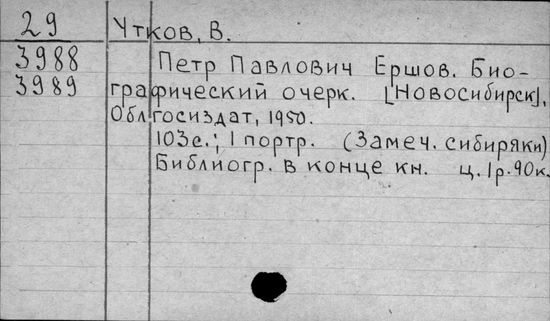 29 Чтков, В.
3988 Петр Павлович Ершов. Био-
3989 графический очерк. [Новосибирск],
Облгосиздат, 1950.
103с.; 1 портр. (Замеч. сибиряки)
Библиогр. в конце кн. ц. 1р. 90к.